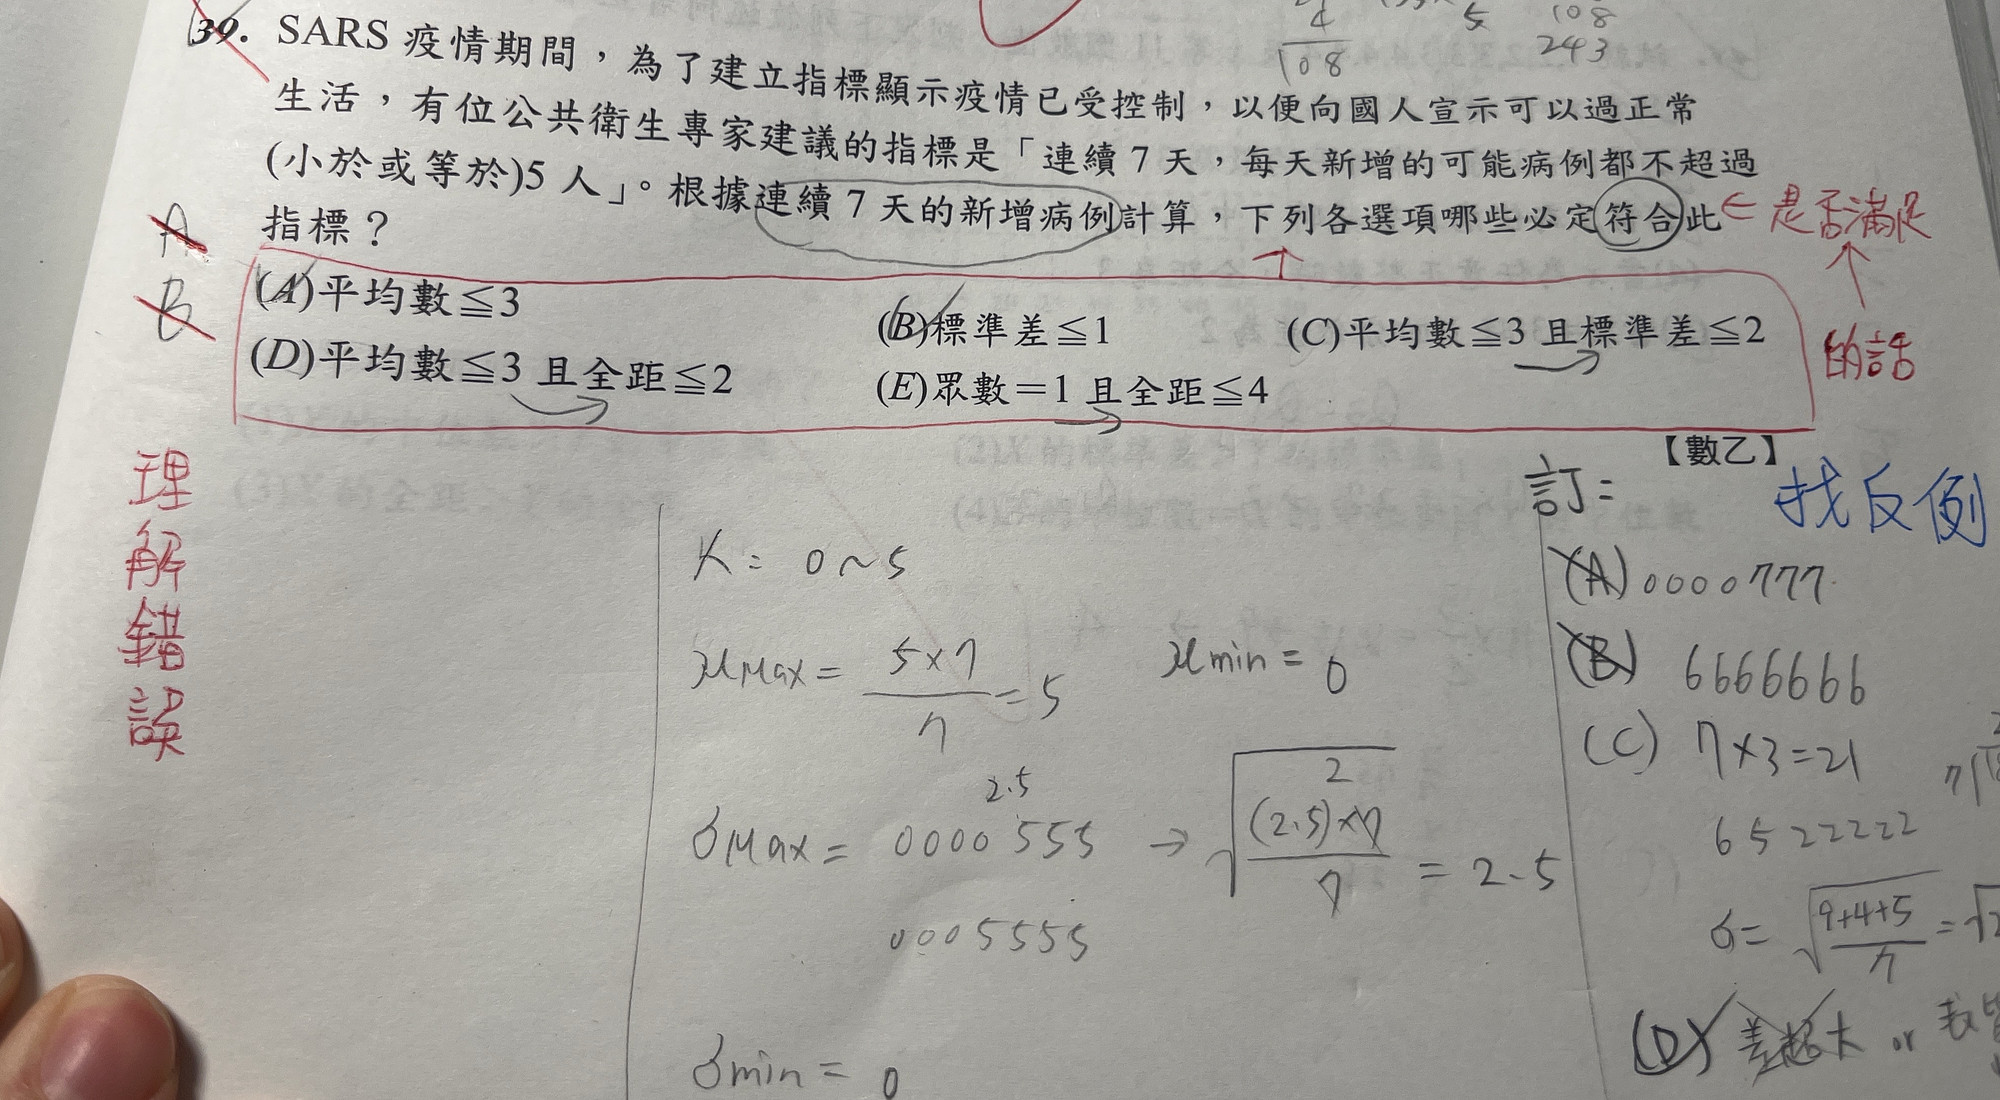 4
108
5
108
243
39. SARS 疫情期間，為了建立指標顯示疫情已受控制，以便向國人宣示可以過正常
生活，有位公共衛生專家建議的指標是「連續 7 天，每天新增的可能病例都不超過
(小於或等於)5 人」。根據連續 7 天的新增病例計算，下列各選項哪些必定符合此
指標？
← 是否滿足
的話
A
B
(A)平均數≦3
(B)標準差≦1
(C)平均數≦3 且標準差≦2
(D)平均數≦3 且全距≦2
(E)眾數＝1 且全距≦4
【數乙】
理解錯誤
X = 0~5
μMax = 5×7/7 = 5
μmin = 0
2.5
σMax = 0000555 → √((2.5)²×7/7) = 2.5
0005555
σmin = 0
訂：
找反例
(A) 0000777
(B) 6666666
(C) 7×3=21
6522222
σ= √(9+4+5/7) = √2
(D) 差超大 or